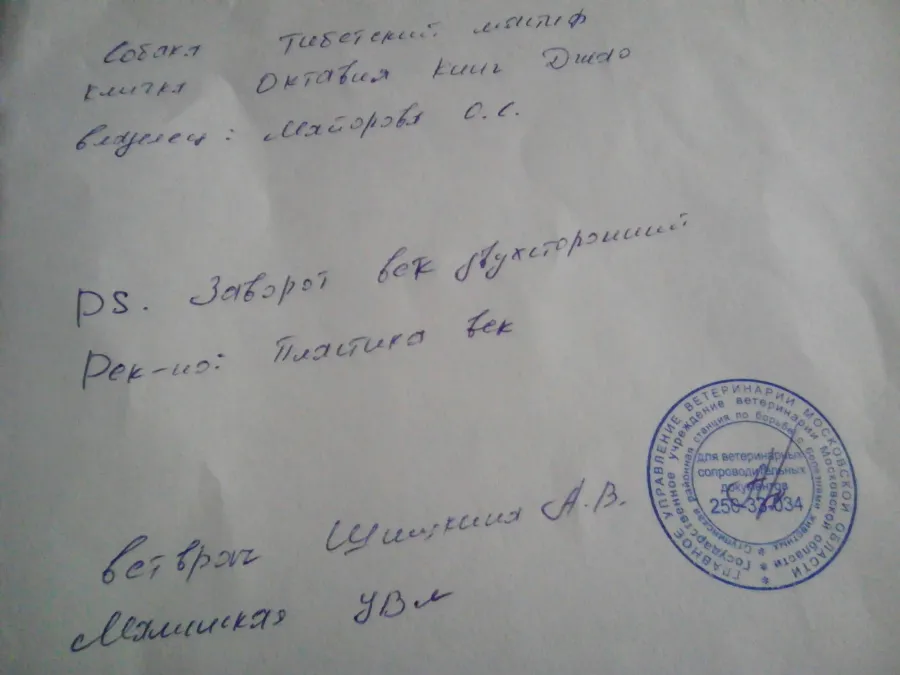 Собака Тибетский мастиф
кличка Октавия Кинг Джао
владелец: Майорова О.С.
DS. Заворот век двухсторонний
Рек-но: Пластика век
ветврач А.В.
Малинская УВЛ
ГЛАВНОЕ УПРАВЛЕНИЕ ВЕТЕРИНАРИИ МОСКОВСКОЙ ОБЛАСТИ
Государственное учреждение ветеринарии Московской области
Ступинская районная станция по борьбе с болезнями животных
для ветеринарных
сопроводительных
документов
250-33-034